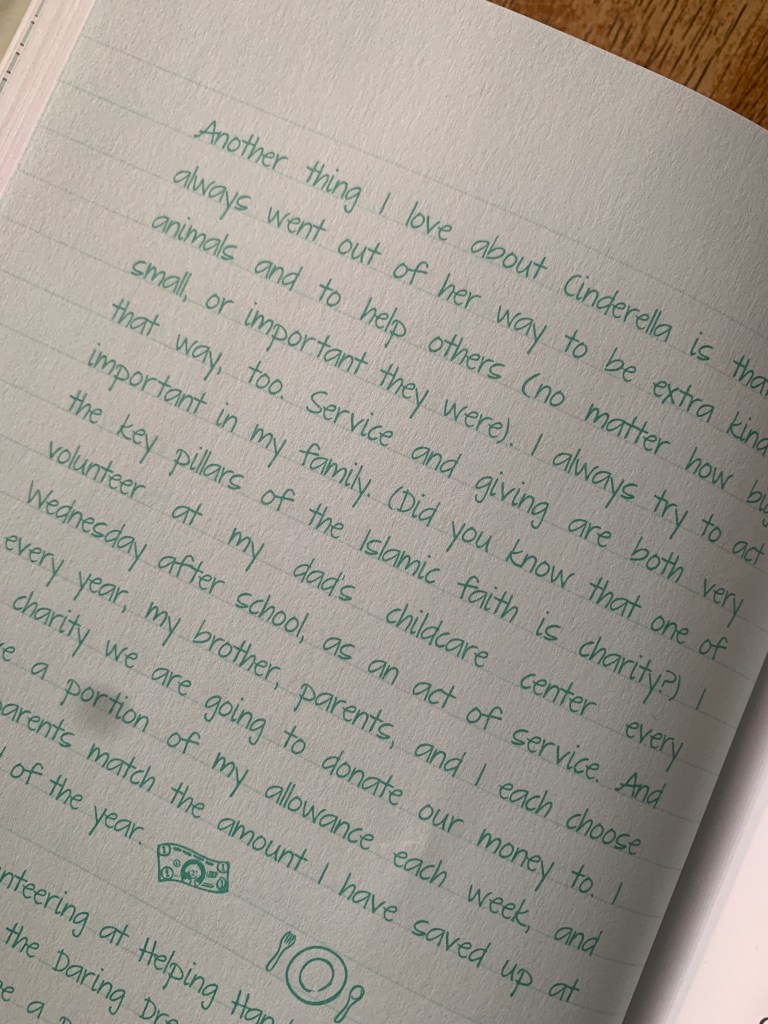 Another thing I love about Cinderella is that
always went out of her way to be extra kind
animals and to help others (no matter how big
small, or important they were). I always try to act
that way, too. Service and giving are both very
important in my family. (Did you know that one of
the key pillars of the Islamic faith is charity?) I
volunteer at my dad's childcare center every
Wednesday after school, as an act of service. And
every year, my brother, parents, and I each choose
charity we are going to donate our money to. I
a portion of my allowance each week, and
parents match the amount I have saved up at
of the year.
at Helping
the Daring
a